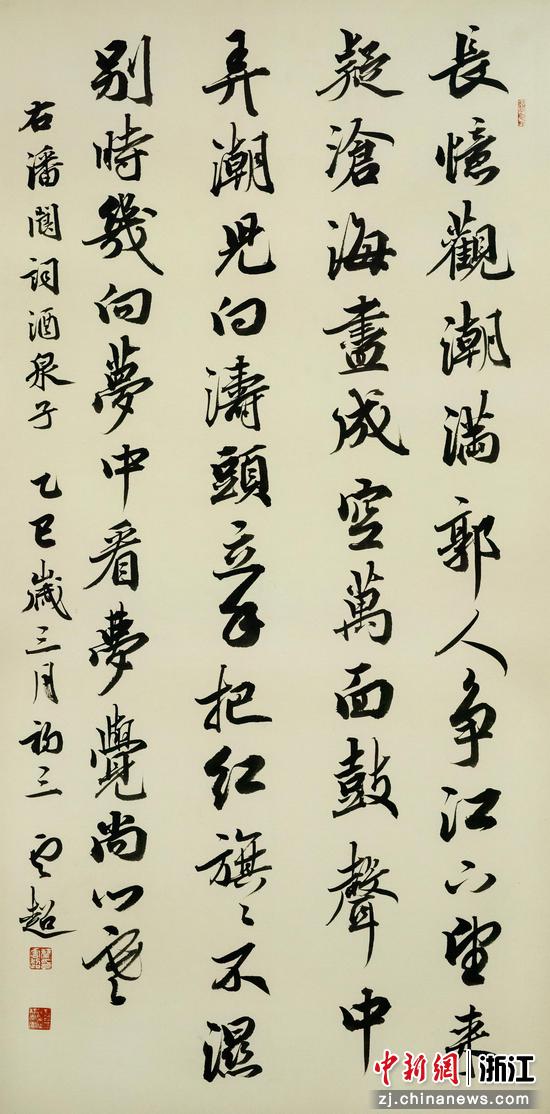 長憶觀潮滿郭人争江上望來
疑滄海盡成空萬面鼓聲中
弄潮兒向濤頭立手把紅旗〻不濕
別時幾向夢中看夢覺尚心寒
右潘閬詞酒泉子 乙巳歲三月初三 超
中新網 浙江
zj.chinanews.com